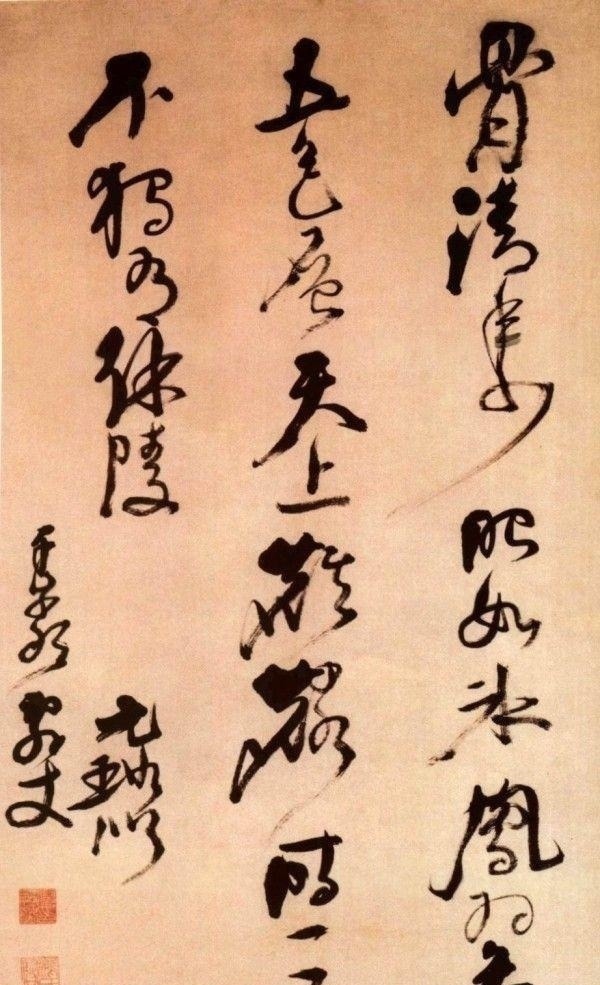 骨清年少眼如冰鳳羽
五色層天上麒麟時一
不獨有徐陵
元璐
丈